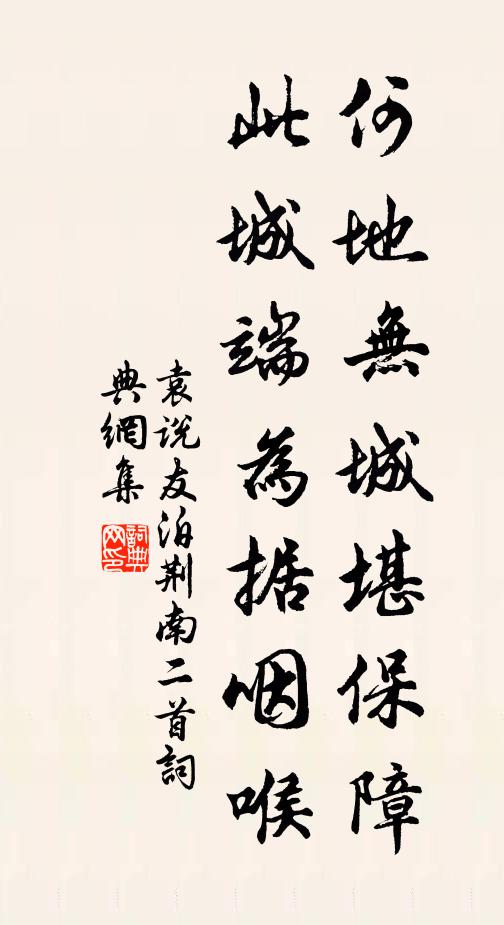 何地無城堪保障
此城端為据咽喉
袁说友泊荆南二首詞
典網集
詞典
网印